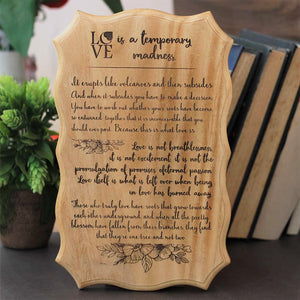 LOVE is a temporary
madness
It erupts like volcanoes and then subsides
And when it subsides you have to make a decision
You have to work out whether your roots have become
so entwined together that it is inconceivable that you
should ever part. Because this is what love is
Love is not breathlessness,
it is not excitement, it is not the
promulgation of promises of eternal passion
Love itself is what is left over when being
in love has burned away
Those who truly love have roots that grow towards
each other underground and when all the pretty
blossom have fallen from their branches they find
that they're one tree and not two